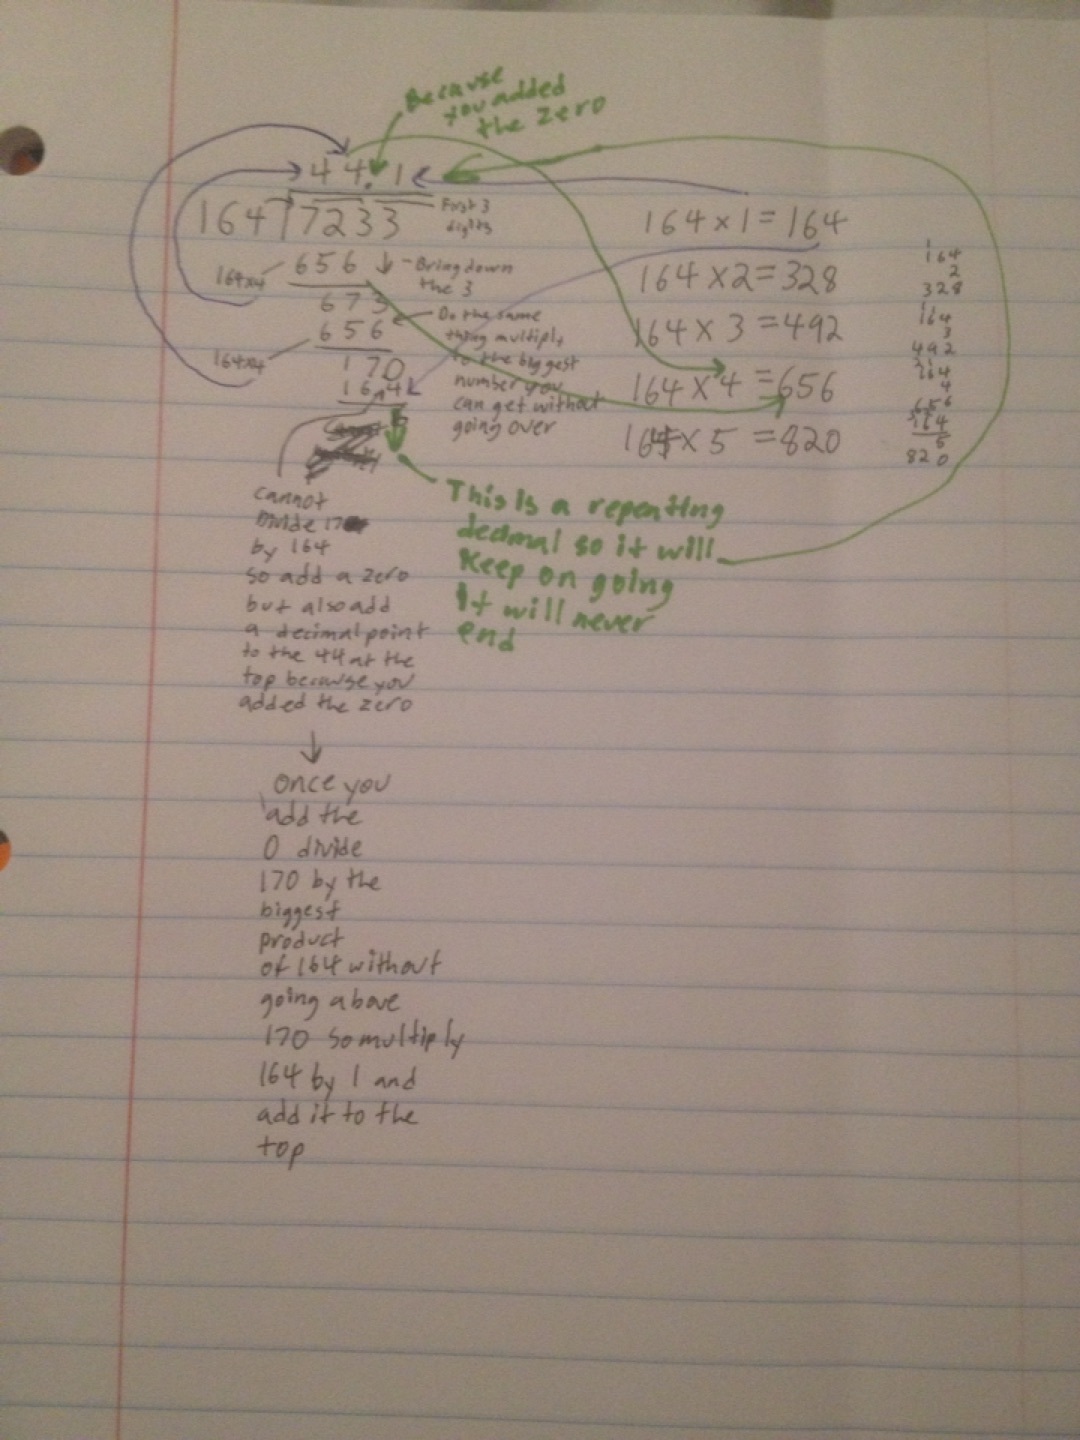 Because
you added
the zero
44.1
164 7233
First 3
digits
656
164x4
- Bring down
the 3
673
656
164x4
Do the same
thing multiply
to the biggest
number you
can get without
going over
170
164
164 x 1 = 164
164 x 2 = 328
164 x 3 = 492
164 x 4 = 656
164 x 5 = 820
1
164
2
328
1
164
3
492
164
4
656
164
5
820
cannot
Divide 17
by 164
so add a zero
but also add
a decimal point
to the 44 at the
top because you
added the zero
This is a repeating
decimal so it will
Keep on going
It will never
end
Once you
add the
0 divide
170 by the
biggest
product
of 164 without
going above
170 so multiply
164 by 1 and
add it to the
top